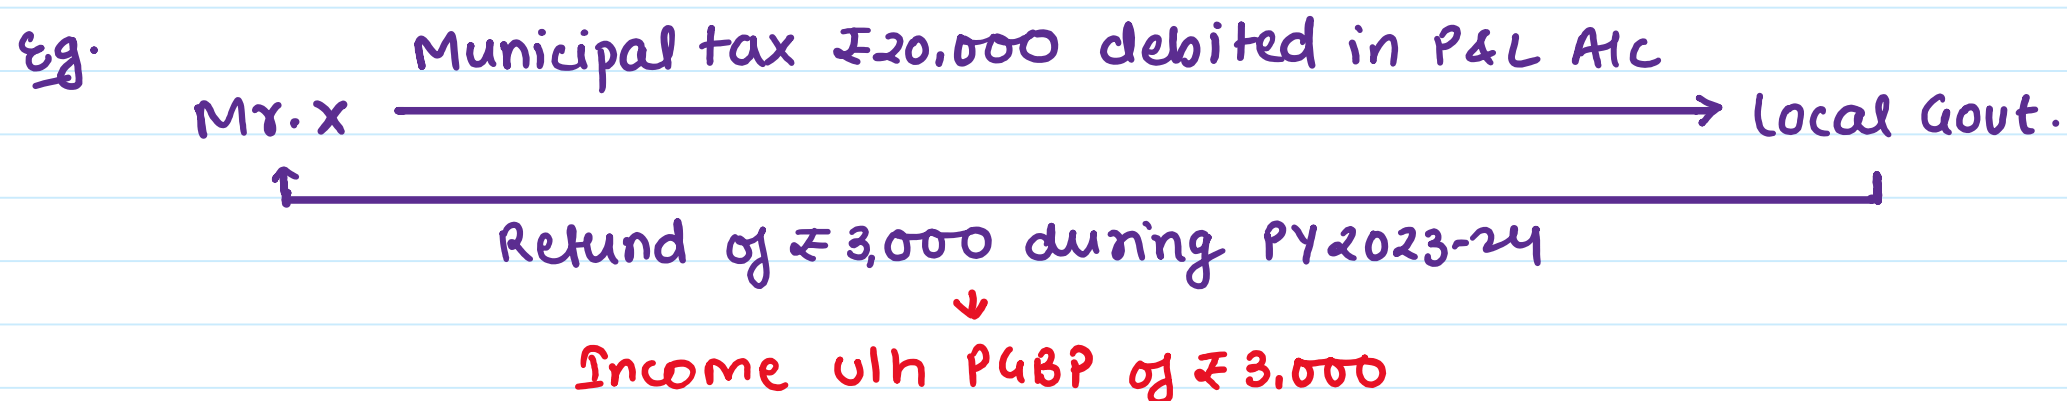 Eg.
Municipal tax ₹20,000 debited in P&L A/c
Mr. X
Local Govt.
Refund of ₹3,000 during PY2023-24
Income u/h PGBP of ₹3,000